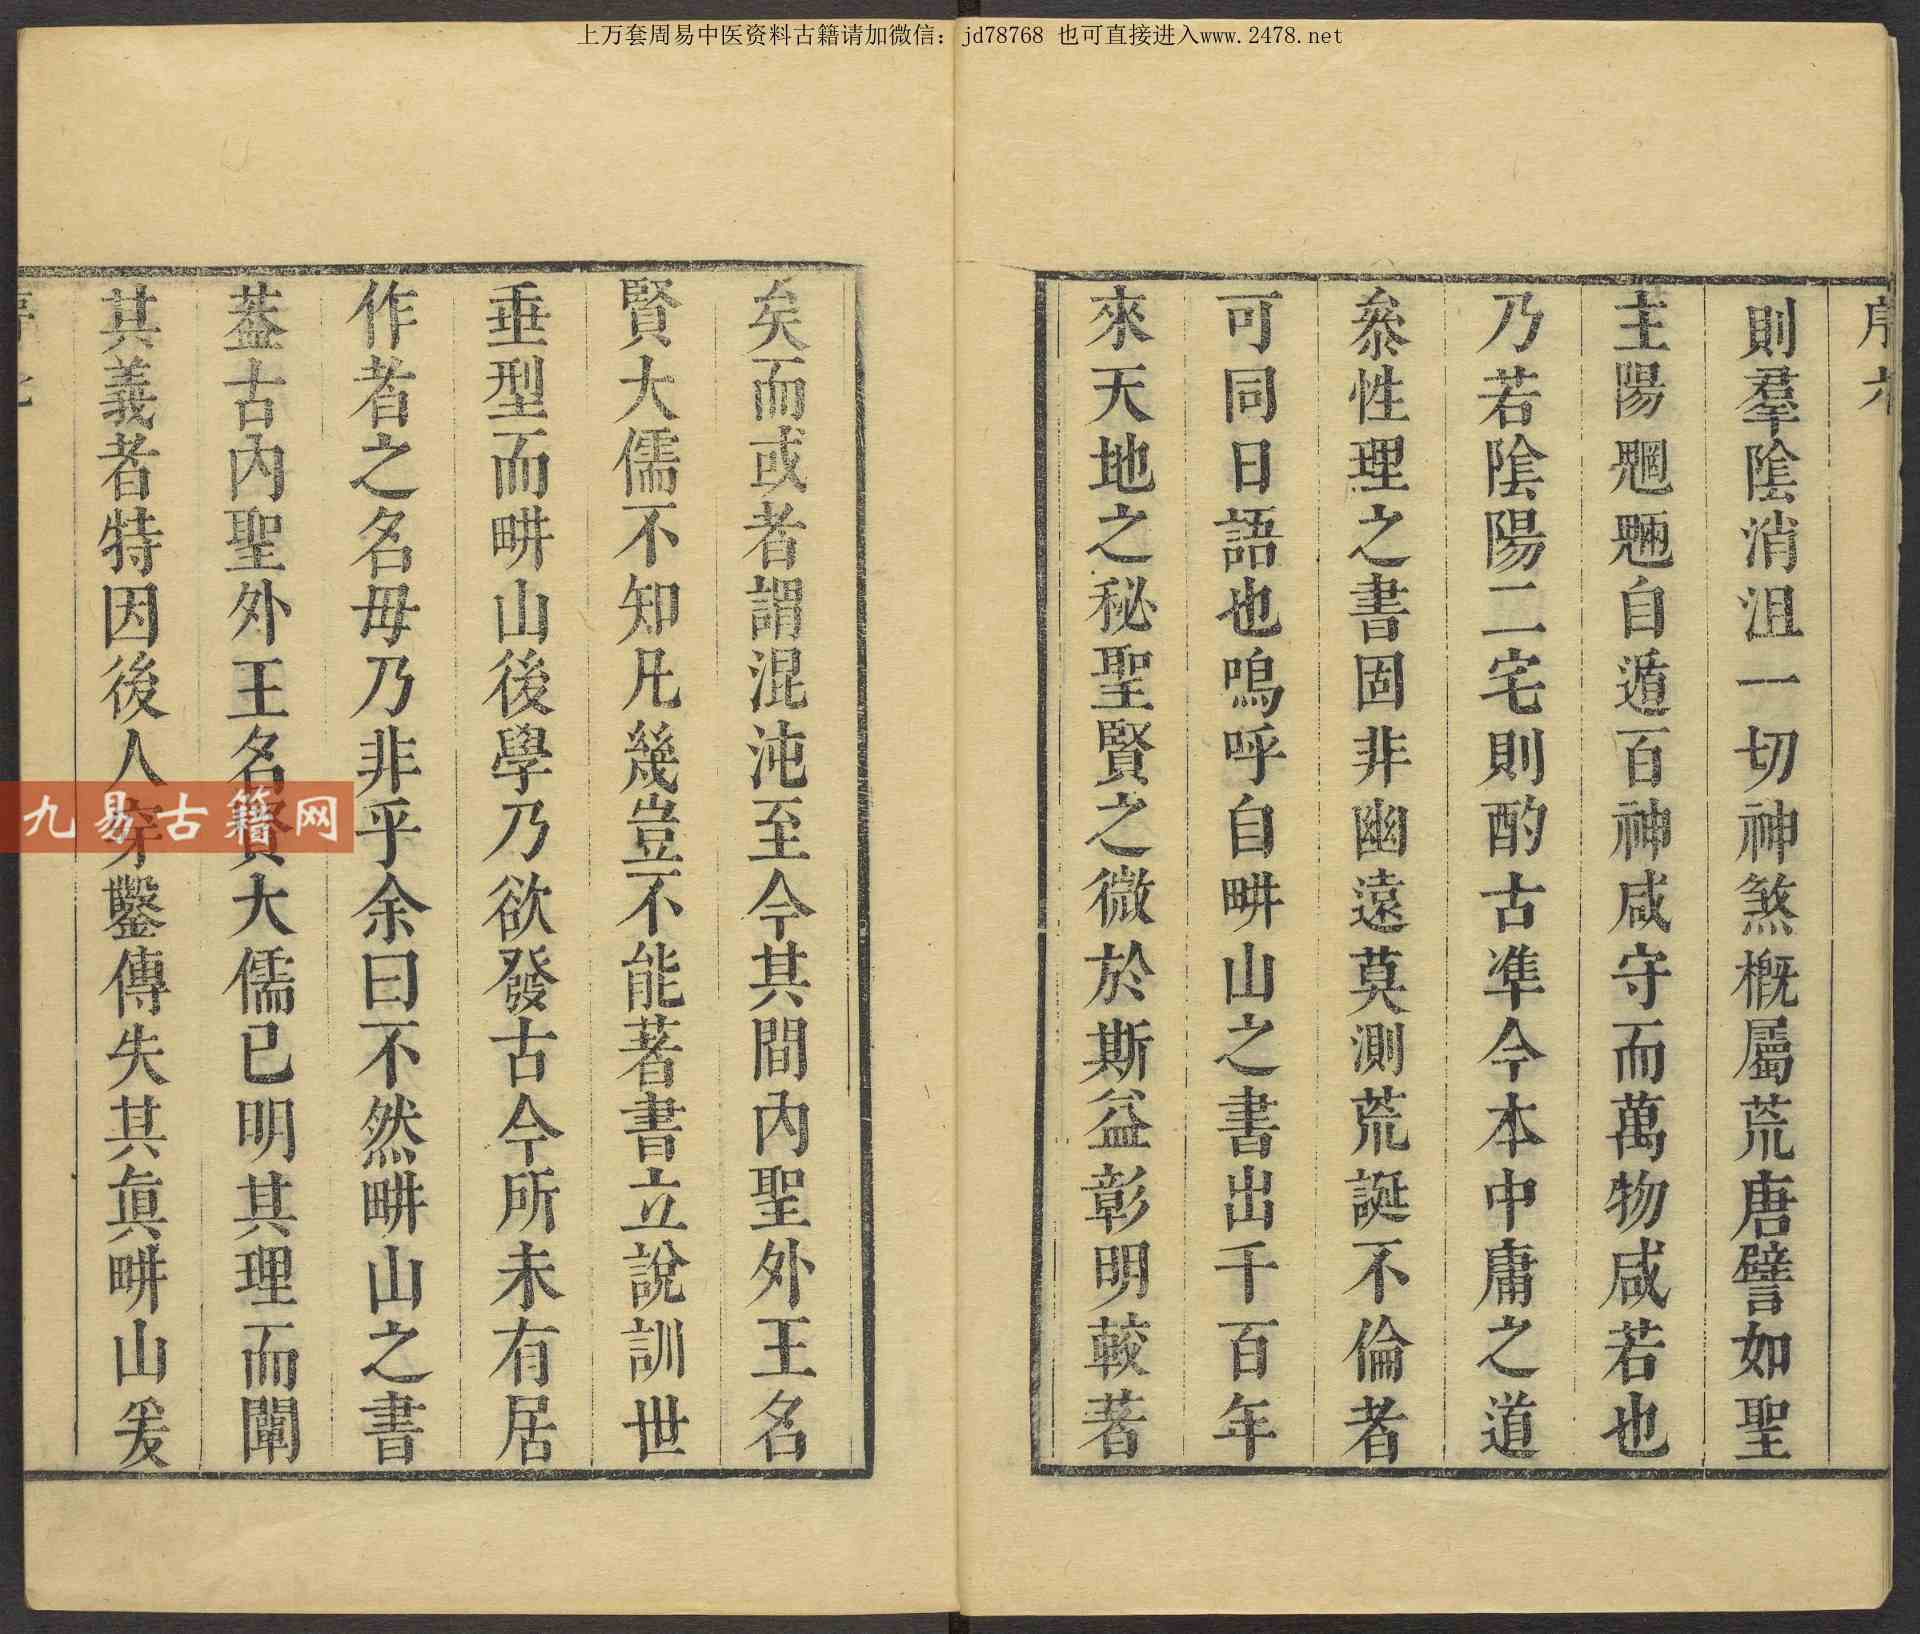 上万套周易中医资料古籍请加微信：jd78768 也可直接进入www.2478.net
序六
則羣陰消沮一切神煞概屬荒唐譬如聖
主陽魍魎自遁百神咸守而萬物咸若也
乃若陰陽二宅則酌古準今本中庸之道
叅性理之書固非幽遠莫測荒誕不倫者
可同日語也嗚呼自畊山之書出千百年
來天地之秘聖賢之微於斯益彰明較著
矣而或者謂混沌至今其間內聖外王名
賢大儒不知凡幾豈不能著書立說訓世
垂型而畊山後學乃欲發古今所未有居
作者之名毋乃非乎余曰不然畊山之書
葢古內聖外王名賢大儒已明其理而闡
其義者特因後人穿鑿傳失其眞畊山爰
九易古籍网